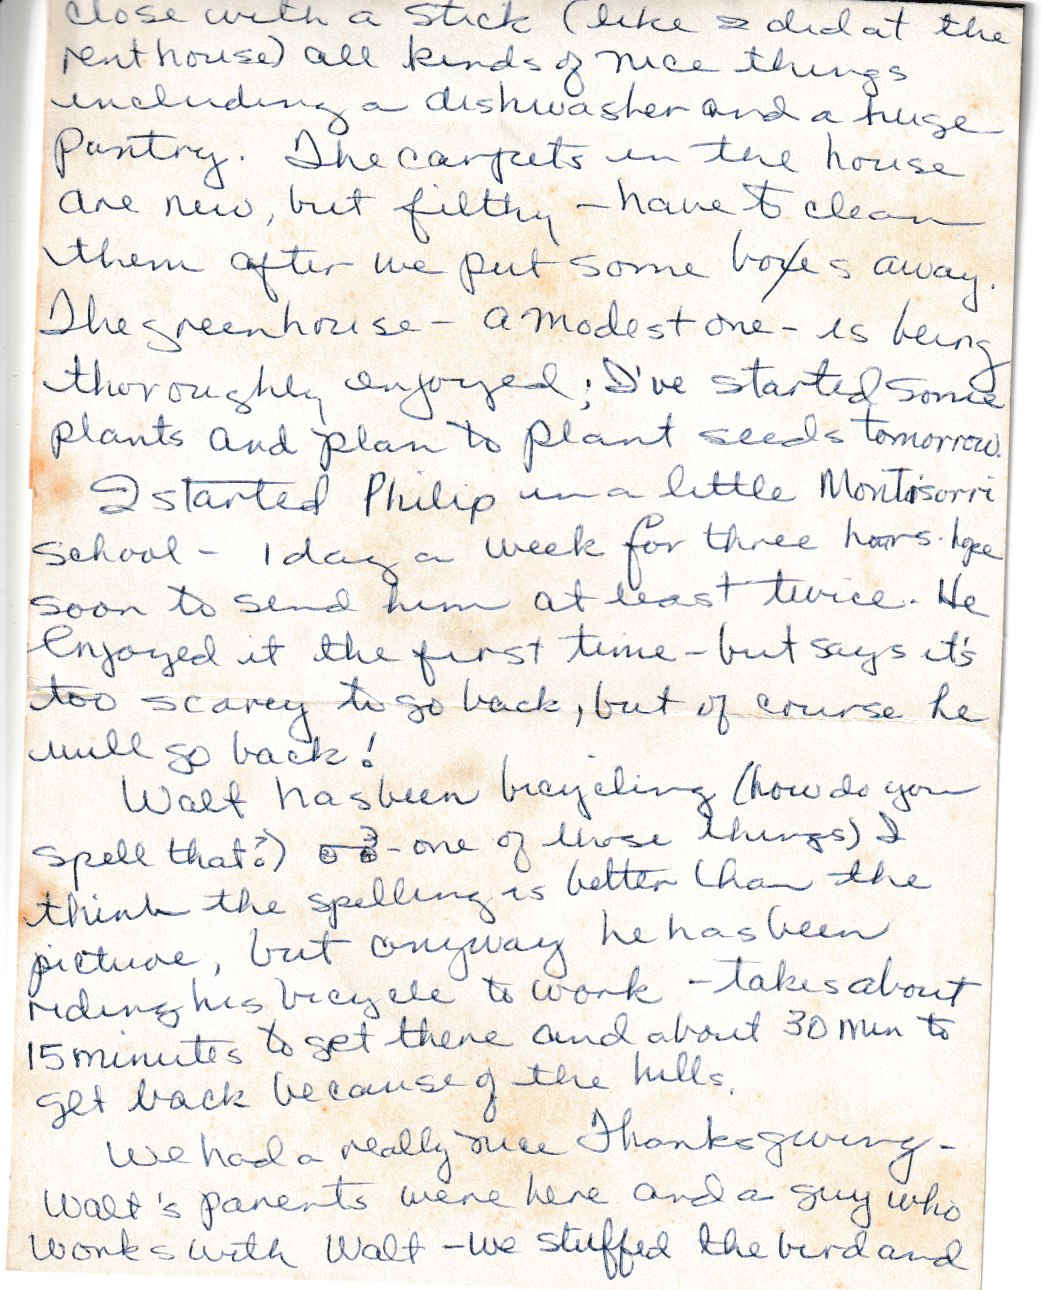 close with a stick (like I did at the
rent house) all kinds of nice things
including a dishwasher and a huge
pantry. The carpets in the house
are new, but filthy - have to clean
them after we put some boxes away.
The greenhouse - a modest one - is being
thoroughly enjoyed; I've started some
plants and plan to plant seeds tomorrow.
I started Philip in a little Montisorri
School - 1 day a week for three hours. hope
soon to send him at least twice. He
enjoyed it the first time - but says it's
too scarey to go back, but of course he
will go back!
Walt has been bicycling (how do you
spell that?) - one of those things) I
think the spelling is better than the
picture, but anyway he has been
riding his bicycle to work - takes about
15 minutes to get there and about 30 min to
get back because of the hills.
We had a really nice Thanksgiving -
Walt's parents were here and a guy who
works with Walt - we stuffed the bird and